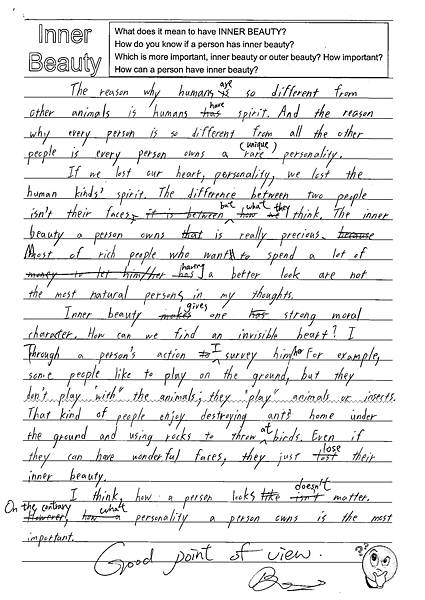 Inner Beauty
What does it mean to have INNER BEAUTY?
How do you know if a person has inner beauty?
Which is more important, inner beauty or outer beauty? How important?
How can a person have inner beauty?
are
The reason why humans is so different from
have
other animals is humans has spirit. And the reason
why every person is so different from all the other
(unique)
people is every person owns a rare personality.
If we lost our heart, personality, we lost the
human kinds' spirit. The difference between two people
but what they
isn't their faces, it is between how we think. The inner
beauty a person owns that is really precious. because
Most of rich people who want to spend a lot of
having
money to let him/her has a better look are not
the most natural persons in my thoughts.
gives
Inner beauty makes one has strong moral
character. How can we find an invisible heart? I
I her
Through a person's action to survey him/ For example,
some people like to play on the ground, but they
don't play "with" the animals; they "play" animals or insects.
That kind of people enjoy destroying ants' home under
at
the ground and using rocks to throw birds. Even if
lose
they can have wonderful faces, they just lost their
inner beauty.
doesn't
I think, how a person looks like isn't matter.
On the contrary what
However, how a personality a person owns is the most
important.
Good point of view.
??